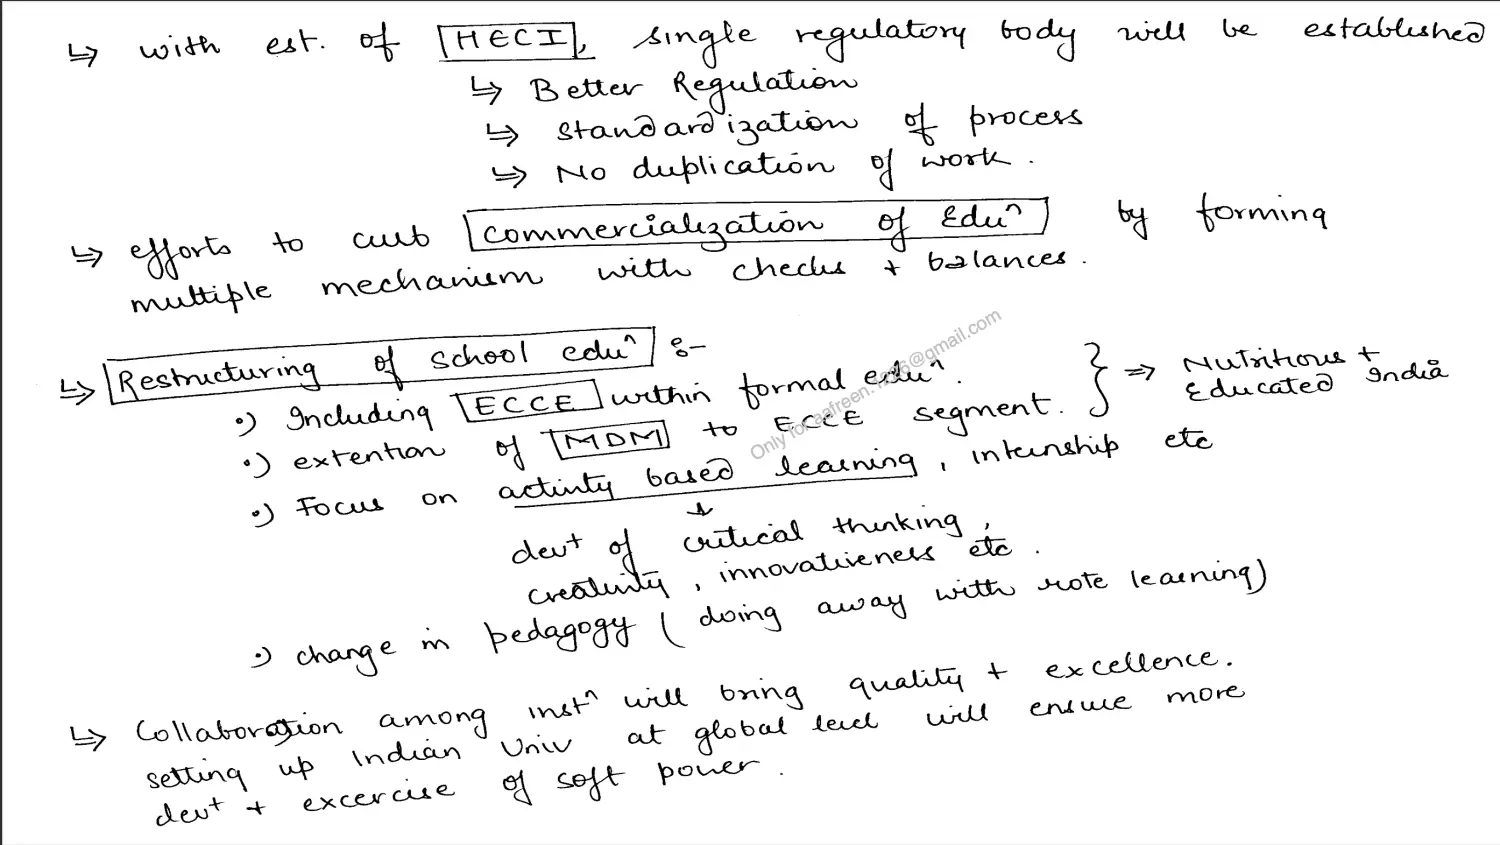 ↳ with est. of HECI, single regulatory body will be established
↳ Better Regulation
↳ standardization of process
↳ No duplication of work.
↳ efforts to curb commercialization of Eduⁿ by forming
multiple mechanism with checks + balances.
↳ Restructuring of school eduⁿ :-
•) Including ECCE within formal eduⁿ.
•) extention of MDM to ECCE segment. } ⇒ Nutritious +
Educated India
•) Focus on activity based learning, internship etc
↓
devt of critical thinking,
creativity, innovativeness etc.
•) change in pedagogy (doing away with rote learning)
↳ Collaboration among instⁿ will bring quality + excellence.
setting up Indian Univ at global level will ensure more
devt + excercise of soft power.